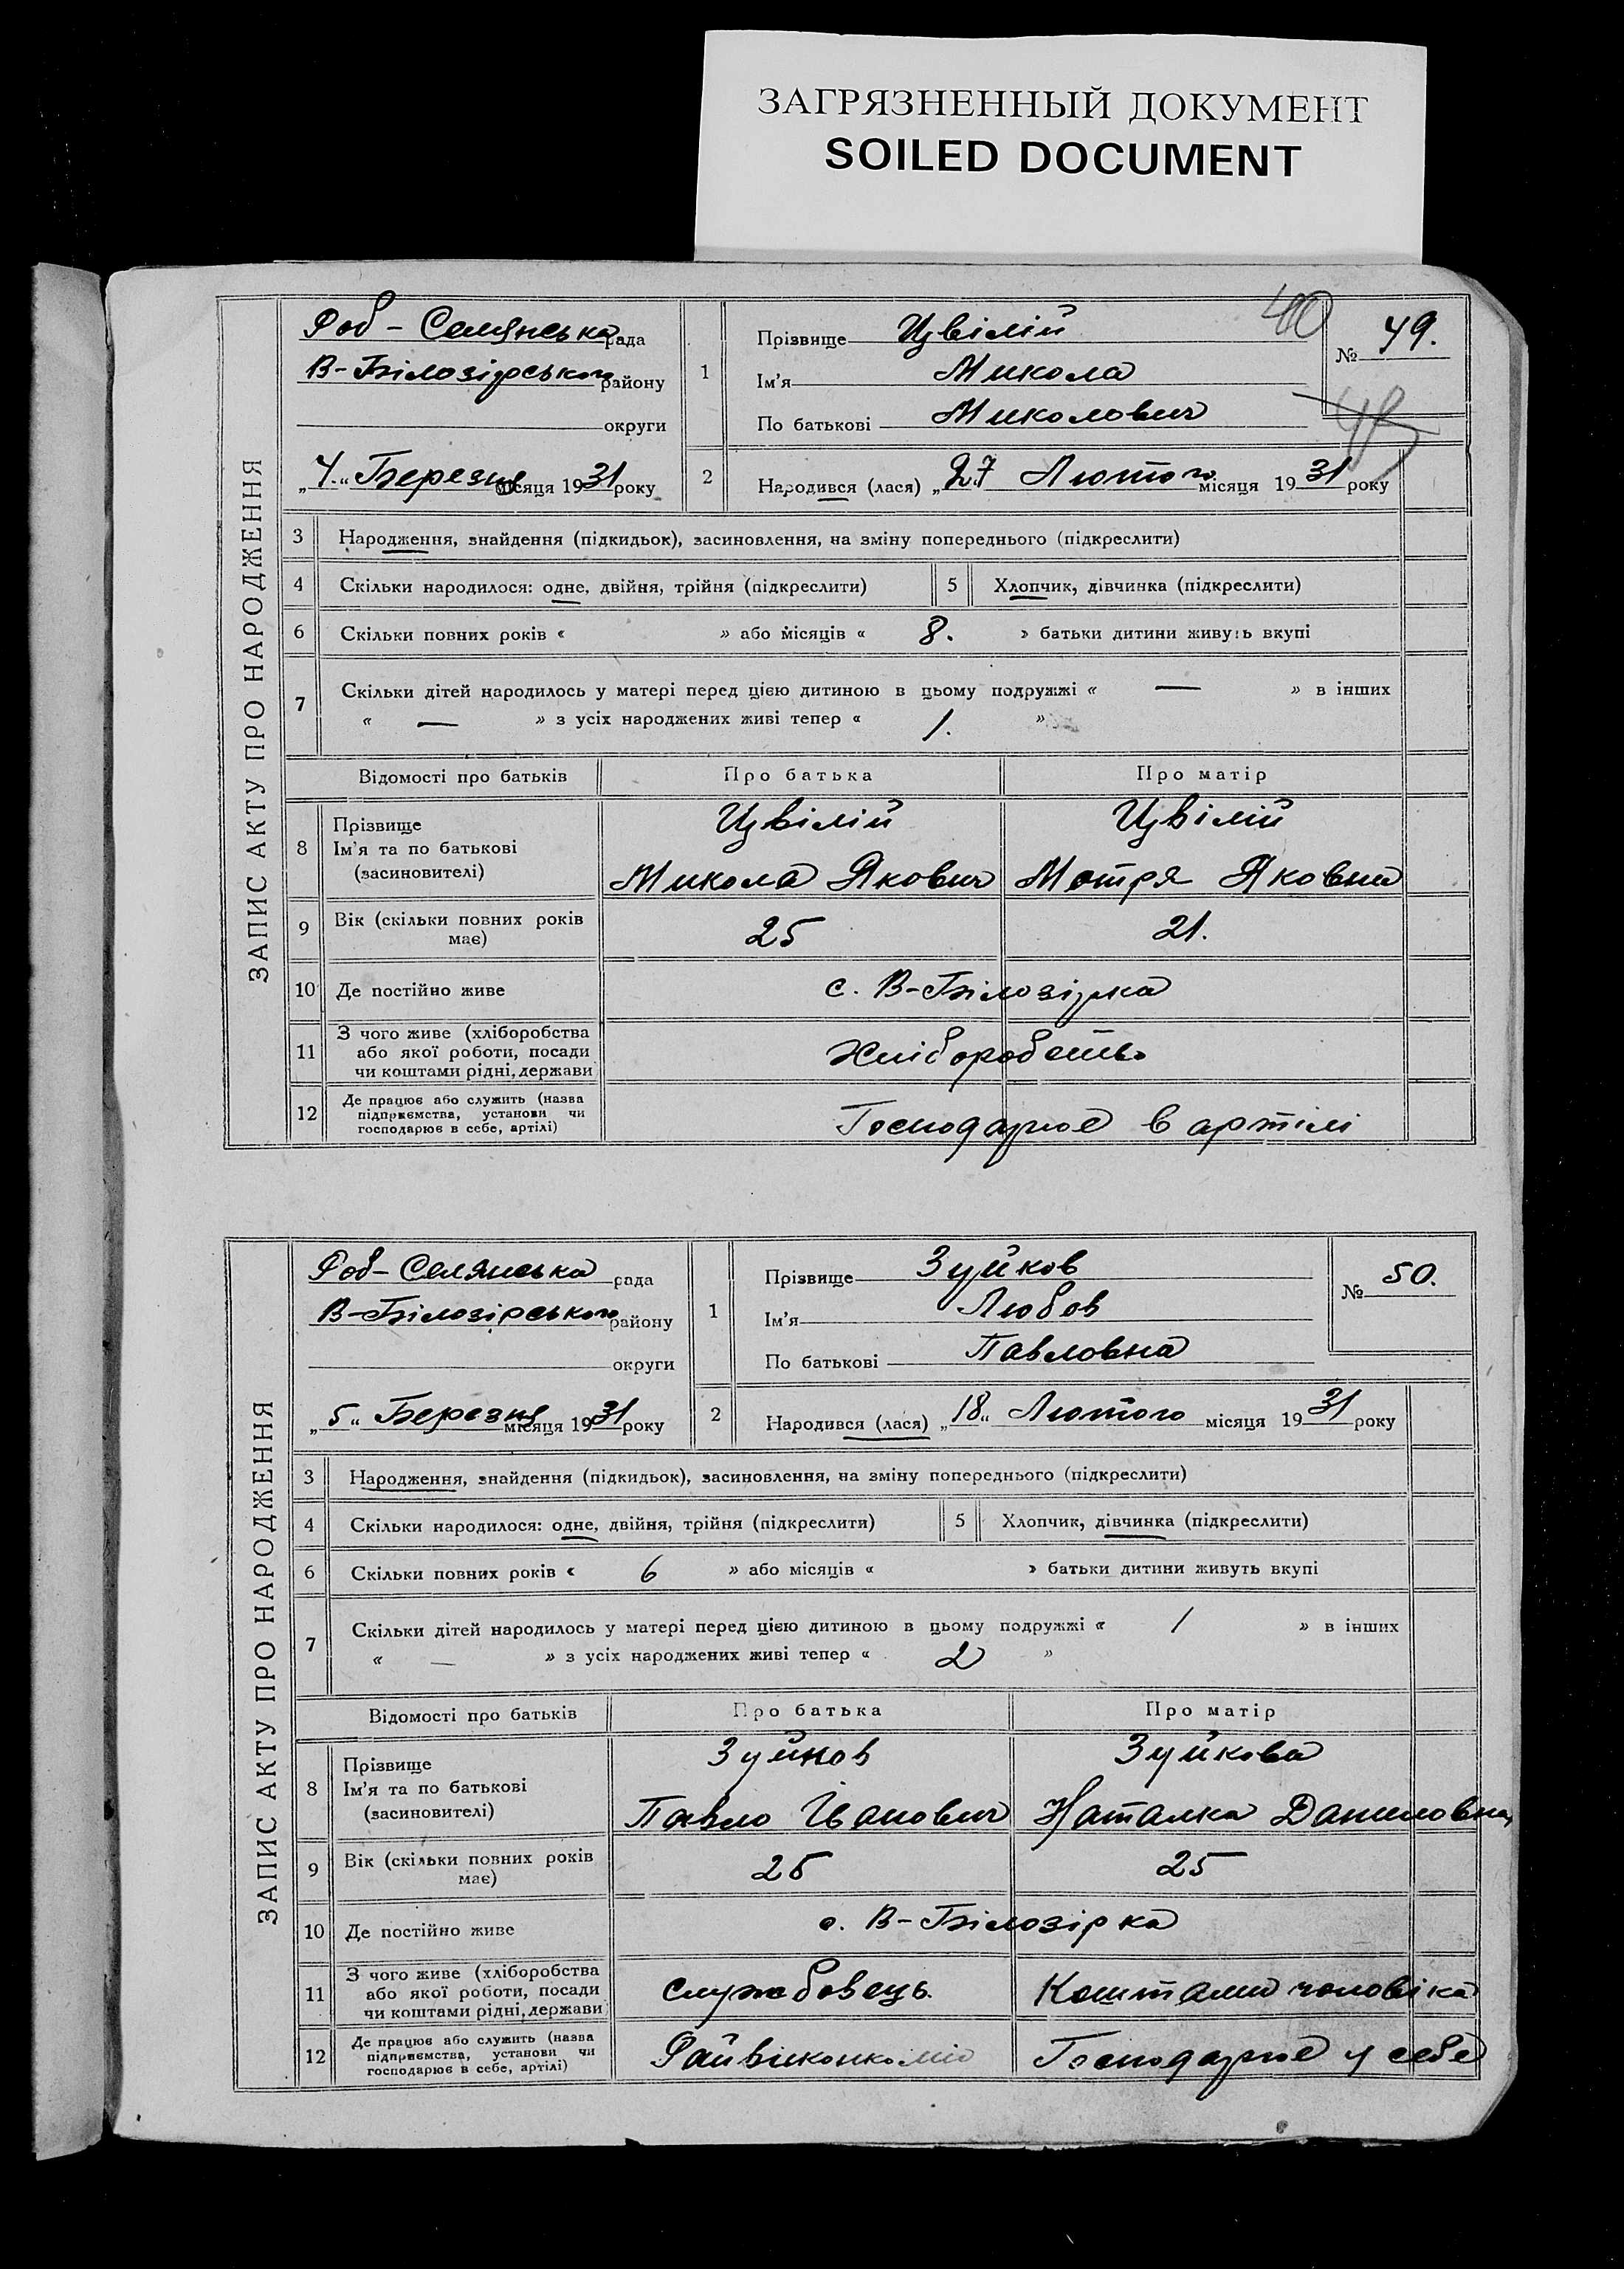 ЗАГРЯЗНЕННЫЙ ДОКУМЕНТ
SOILED DOCUMENT
40
ЗАПИС АКТУ ПРО НАРОДЖЕННЯ
Роб-Селянська рада
В-Білозірського району
округи
„4.“ Березня місяця 1931 року
1
Прізвище Цвілій
Ім'я Микола
По батькові Миколович
№ 49.
48
2 Народився (лася) „27 Лютого місяця 1931 року
3 Народження, знайдення (підкидьок), засиновлення, на зміну попереднього (підкреслити)
4 Скільки народилося: одне, двійня, трійня (підкреслити) 5 Хлопчик, дівчинка (підкреслити)
6 Скільки повних років « » або місяців « 8. » батьки дитини живуть вкупі
7 Скільки дітей народилось у матері перед цією дитиною в цьому подружжі « — » в інших
« — » з усіх народжених живі тепер « 1. »
Відомості про батьків Про батька Про матір
8 Прізвище Цвілій Цвілій
Ім'я та по батькові
(засиновителі) Микола Якович Мотря Яковна
9 Вік (скільки повних років
має) 25 21.
10 Де постійно живе с. В-Білозірка
11 З чого живе (хліборобства
або якої роботи, посади
чи коштами рідні, держави Хліборобство
12 Де працює або служить (назва
підприємства, установи чи
господарює в себе, артілі) Господарює в артілі
ЗАПИС АКТУ ПРО НАРОДЖЕННЯ
Роб-Селянська рада
В-Білозірського району
округи
„5“ Березня місяця 1931 року
1
Прізвище Зуйков
Ім'я Любов
По батькові Павловна
№ 50.
2 Народився (лася) „18“ Лютого місяця 1931 року
3 Народження, знайдення (підкидьок), засиновлення, на зміну попереднього (підкреслити)
4 Скільки народилося: одне, двійня, трійня (підкреслити) 5 Хлопчик, дівчинка (підкреслити)
6 Скільки повних років « 6 » або місяців « » батьки дитини живуть вкупі
7 Скільки дітей народилось у матері перед цією дитиною в цьому подружжі « 1 » в інших
« — » з усіх народжених живі тепер « 2 »
Відомості про батьків Про батька Про матір
8 Прізвище Зуйков Зуйкова
Ім'я та по батькові
(засиновителі) Павло Іванович Наталка Даниловна
9 Вік (скільки повних років
має) 25 25
10 Де постійно живе с. В-Білозірка
11 З чого живе (хліборобства
або якої роботи, посади
чи коштами рідні, держави службовець Коштами чоловіка
12 Де працює або служить (назва
підприємства, установи чи
господарює в себе, артілі) Райвиконком Господарює у себе